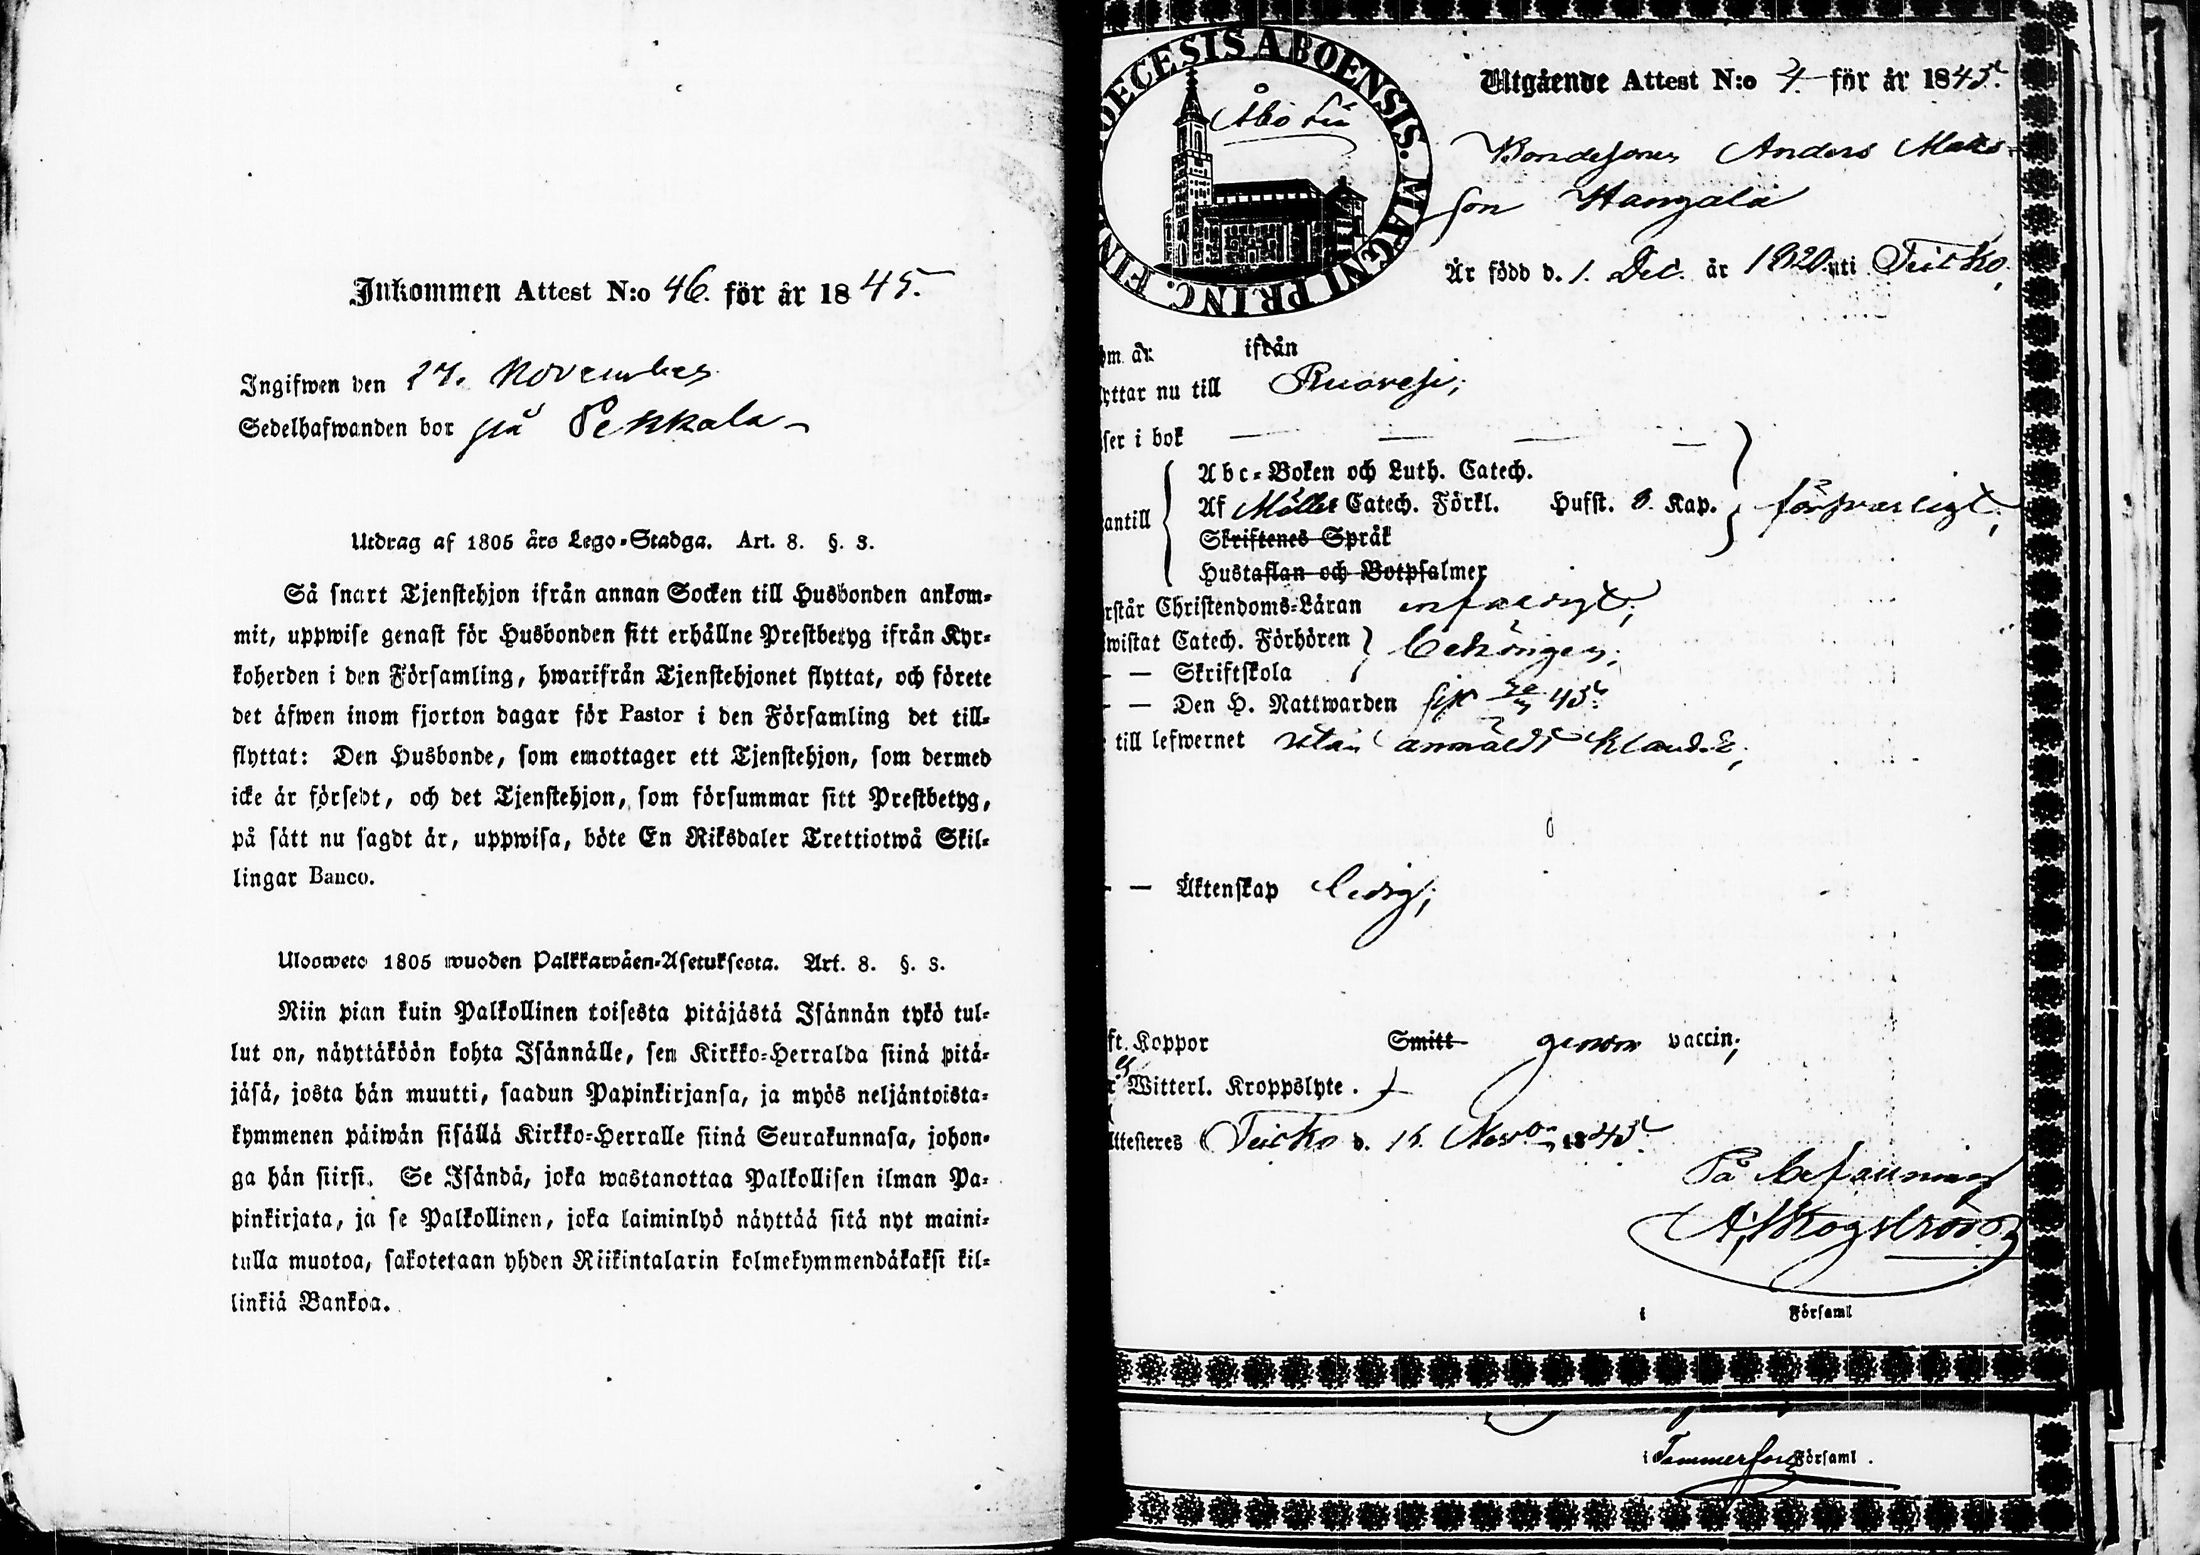 Inkommen Attest N:o 46. för år 1845.
Ingifwen den 27. November
Sedelhafwanden bor på Pekkala
Utdrag af 1805 års Lego-Stadga. Art. 8. §. 3.
Så snart Tjenstehjon ifrån annan Socken till Husbonden ankom-
mit, uppwise genast för Husbonden sitt erhållne Prestbetyg ifrån Kyr-
koherden i den Församling, hwarifrån Tjenstehjonet flyttat, och förete
det äfwen inom fjorton dagar för Pastor i den Församling det till-
flyttat: Den Husbonde, som emottager ett Tjenstehjon, som dermed
icke är försedt, och det Tjenstehjon, som försummar sitt Prestbetyg,
på sätt nu sagdt är, uppwisa, böte En Riksdaler Trettiotwå Skil-
lingar Banco.
Ulosweto 1805 wuoden Palkkawäen-Asetuksesta. Art. 8. §. 3.
Niin pian kuin Palkollinen toisesta pitäjästä Isännän tykö tul-
lut on, näyttäköön kohta Isännälle, sen Kirkko-Herralda siinä pitä-
jäsä, josta hän muutti, saadun Papinkirjansa, ja myös neljäntoista-
kymmenen päiwän sisällä Kirkko-Herralle siinä Seurakunnasa, johon-
ga hän siirsi. Se Isändä, joka wastanottaa Palkollisen ilman Pa-
pinkirjata, ja se Palkollinen, joka laiminlyö näyttää sitä nyt maini-
tulla muotoa, sakotetaan yhden Riikintalarin kolmekymmendäkaksi kil-
linkiä Bankoa.
DIOECESIS ABOENSIS. MAGNI PRINC. FIN
Åbo Län
Utgående Attest N:o 4 för år 1845.
Bondesonen Anders Mats-
son Hangala
Är född d. 1. Dec. år 1820 uti
om år ifrån
yttar nu till Ruovesi,
ser i bok
Abc-Boken och Luth. Catech.
antill Af Catech. Förkl. Hufst. 8. Kap. försvarligt,
Skriftenes Språk
Hustaflan och Botpsalmer
rstår Christendoms-Läran enfaldigt,
wistat Catech. Förhören behörigen,
— — Skriftskola
— — Den H. Nattwarden 45.
till lefwernet utan anmäldt klander,
— — Äktenskap ledig,
ft. Koppor Smitt genom vaccin,
Witterl. Kroppslyte.
Attesteres d. 15. Nov. 1845
På befallning
A. Skogström
i Församl
i Tammerfors Församl.